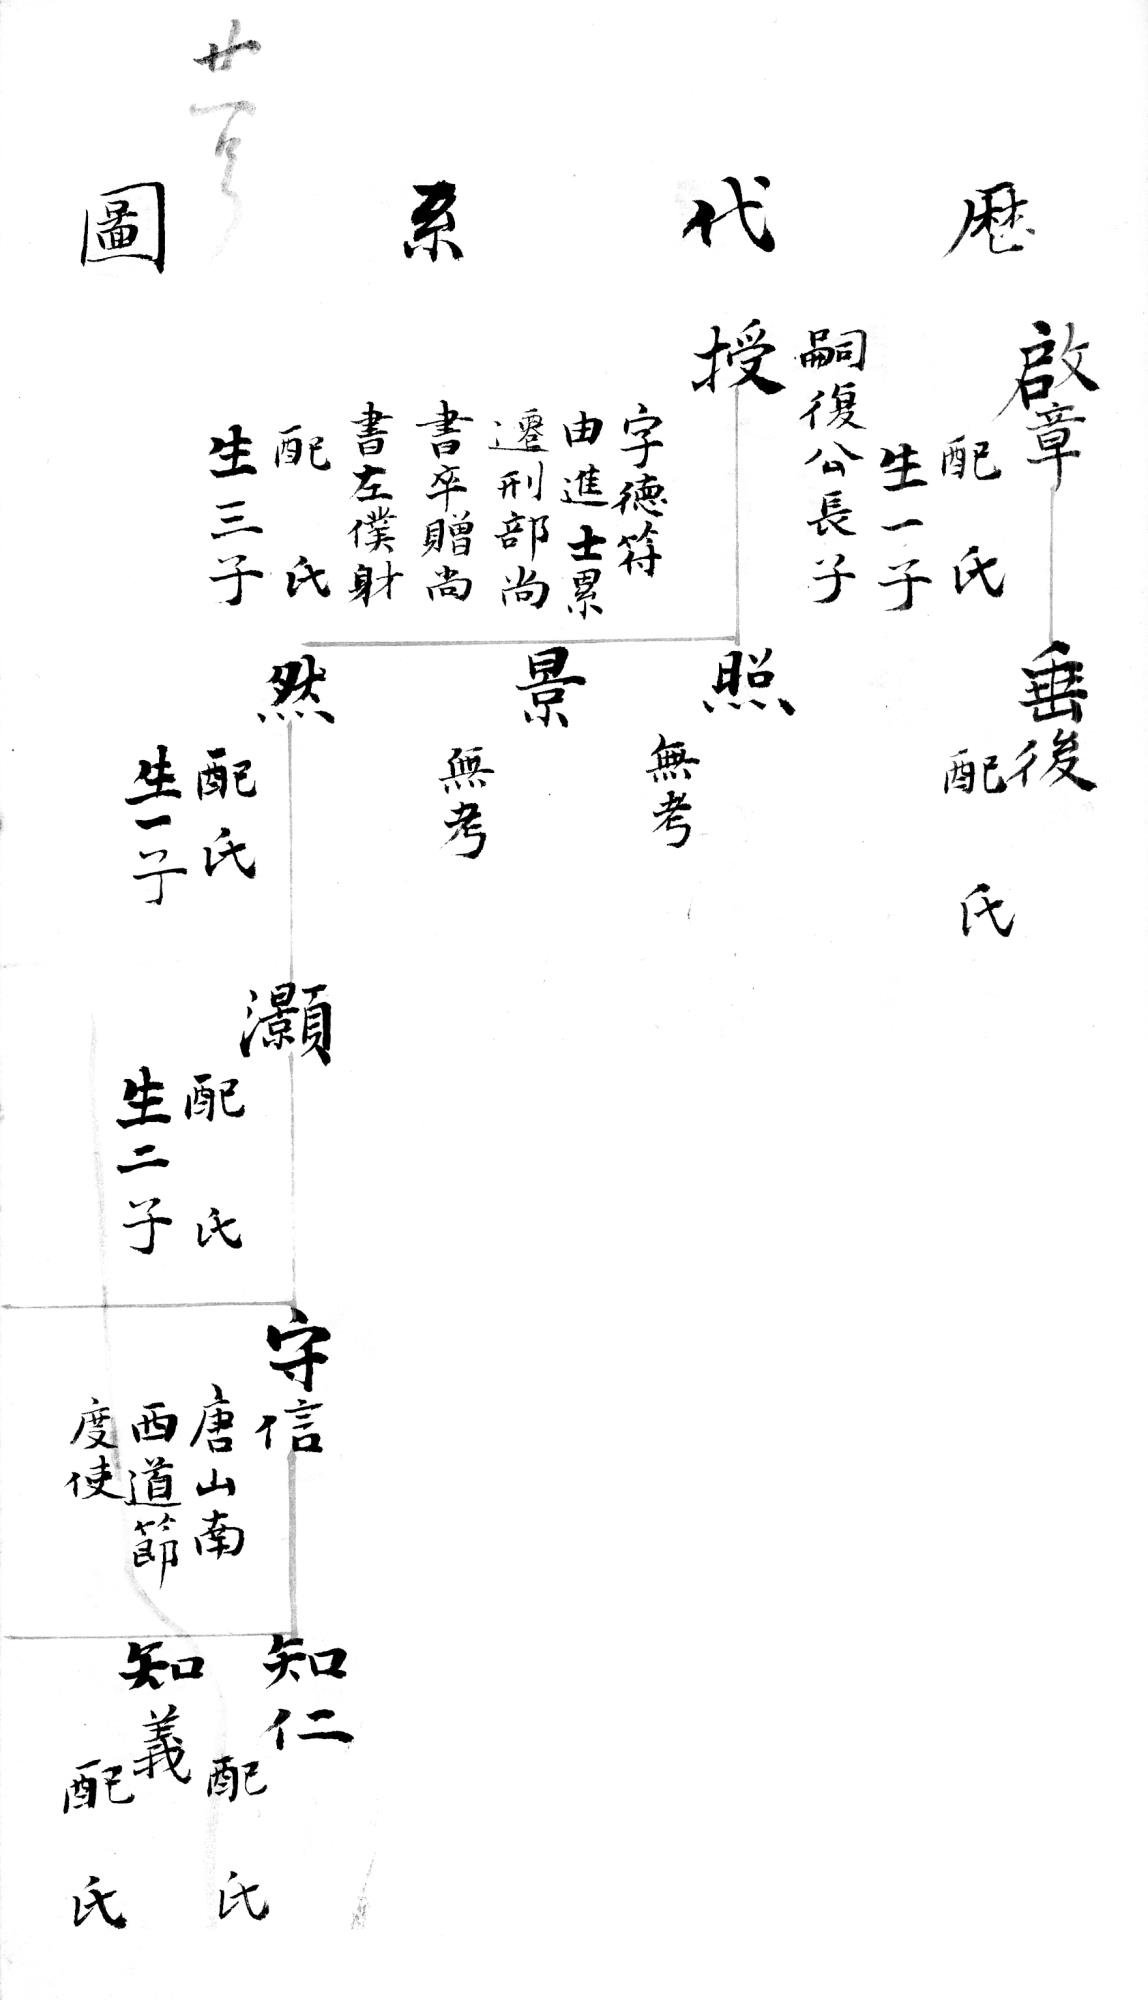 歷代系圖
啟章
配氏
生一子
垂後
配氏
嗣復公長子
授
字德符
由進士累
遷刑部尚
書卒贈尚
書左僕射
配氏
生三子
照
無考
景
無考
然
配氏
生一子
灝
配氏
生二子
守信
唐山南
西道節
度使
知仁
配氏
知義
配氏